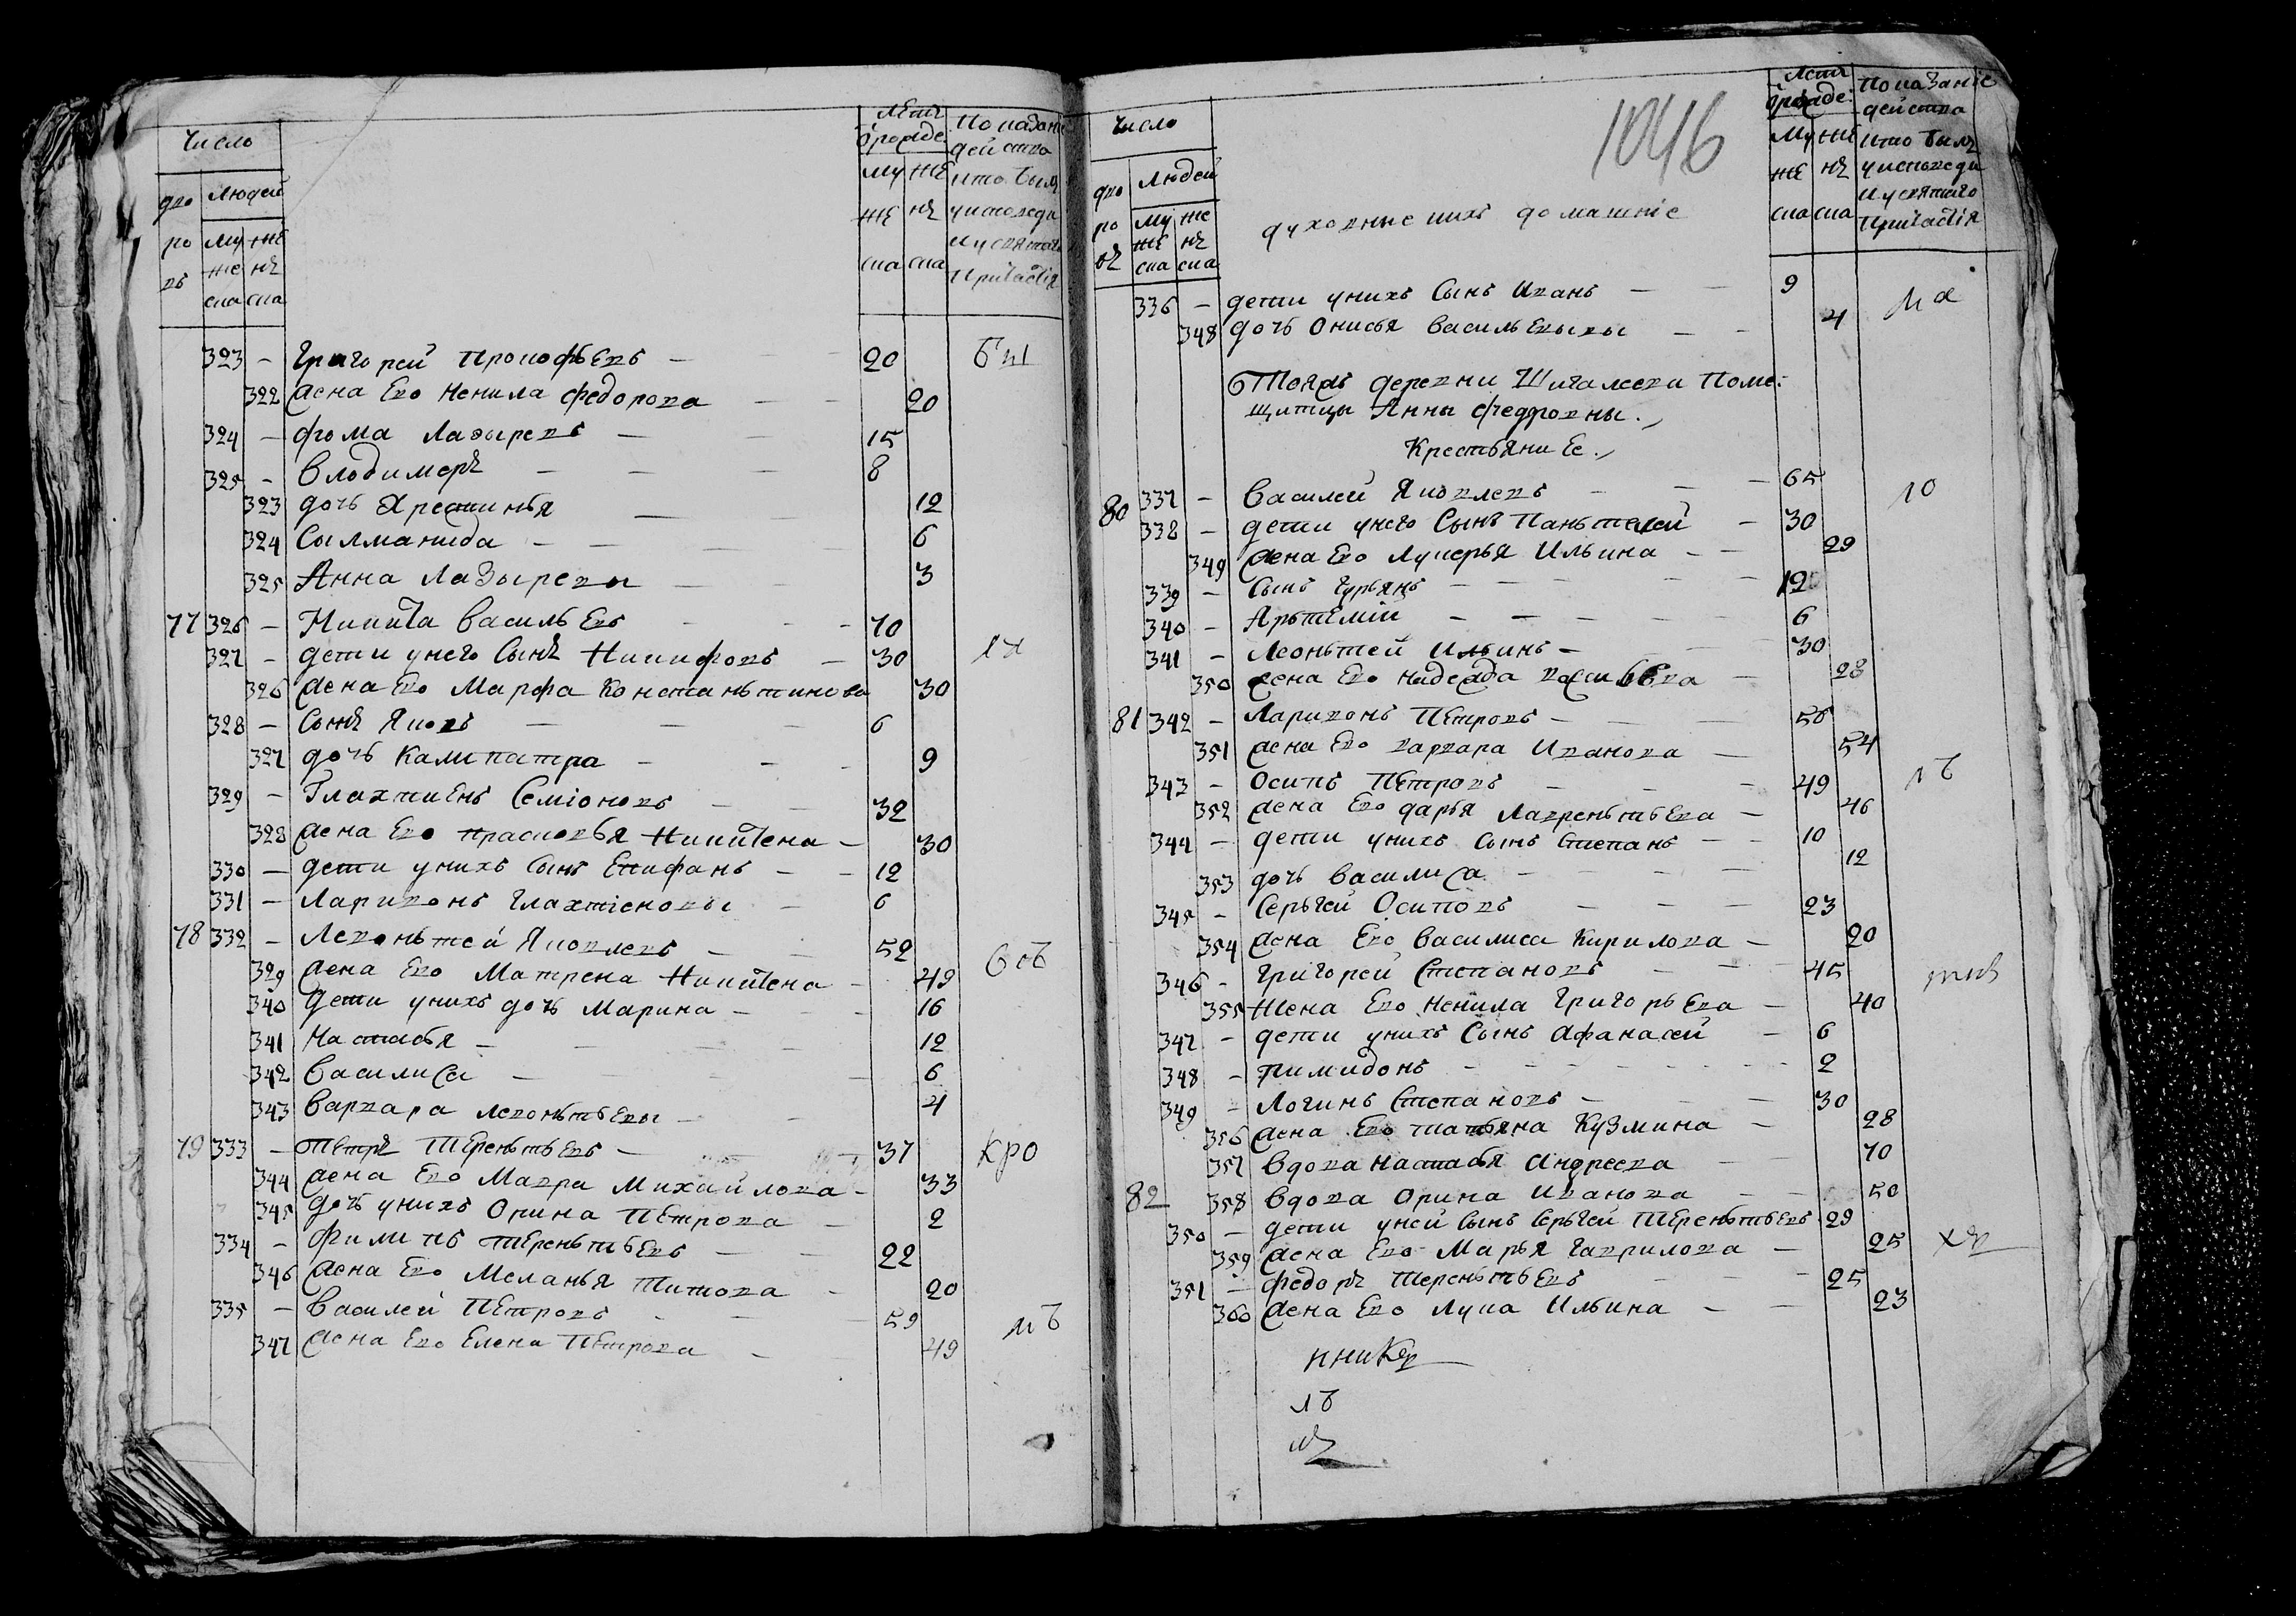 Число
дво ровъ
Людей
муже ска
жен ска
Летъ от рожде:
муже ска
жен ска
Показание действа кто был у исповеди и у святаго причастия
323 – Григорей Прокофьевъ – 20
322 жена Ево Ненила Федорова – 20
324 – Фома Лазыревъ – 15
325 – Влодимеръ – 8
323 дочь Хрестинья – 12
324 Салманида – 6
325 Анна Лазыревы – 3
77 326 – Никита Васильевъ – 70
327 – дети у него Сынъ Никифоръ – 30
326 жена Ево Марфа Констаньтинова 30
328 – Сынъ Яковъ – 6
327 дочь Калипатра – 9
329 – Галахтиенъ Семионовъ – 32
328 жена Ево Прасковья Никитена – 30
330 – дети у нихъ Сынъ Епифанъ – 12
331 – Ларивонъ Галахтіеновы – 6
78 332 – Левоньтей Яковлевъ – 52
329 жена Ево Матрена Никитена – 49
340 Дети у нихъ дочь Марина – 16
341 Настасья – 12
342 Василиса – 6
343 Варвара Левоньтьевы – 4
79 333 – Петръ Тереньтьевъ – 37 кро
344 жена Ево Мавра Михайлова – 33
345 Дочь у нихъ Орина Петрова – 2
334 – Филипъ Тереньтьевъ – 22
346 жена Ево Меланья Титова – 20
335 – Василей Петровъ – 59
347 жена Ево Елена Петрова – 49
1046
Число
дво ровъ
Людей
муже ска
жен ска
духовные ихъ домашніе
Летъ от рожде:
муже ска
жен ска
Показаніе действа кто былъ у исповеди и у святаго причастія
336 – дети у нихъ Сынъ Иванъ – 9
348 дочь Онисья Васильевы – 4
Тояжъ деревни Шигалеевки Поме:
щитцы Анны Федровны.
Крестьяни Ее.
80 337 – Василей Яковлевъ – 65
338 – дети у него Сынъ Паньтелей – 30
349 жена Ево Лукерья Ильина – 29
339 – Сынъ Гурьянъ – 12
340 – Арьтемій – 6
341 – Леоньтей Ильинъ – 30
350 жена Ево Надежда Васильева – 28
81 342 – Ларивонъ Петровъ – 56
351 жена Ево Варвара Иванова – 54
343 – Осипъ Петровъ – 49
352 жена Ево Дарья Лавреньтьева – 46
344 – дети у нихъ Сынъ Степанъ – 10
353 дочь Василиса – 12
345 – Серьгей Осиповъ – 23
354 жена Ево Василиса Кирилова – 20
346 – Григорей Степановъ – 45
355 Жена Ево Ненила Григорьева – 40
347 – дети у нихъ Сынъ Афанасей – 6
348 – Пимидонъ – 2
349 – Логинъ Степановъ – 30
356 жена Ево Татьяна Кузмина – 28
357 Вдова Настасья Андреева – 70
82 358 Вдова Орина Иванова – 50
350 – дети у ней Сынъ Серьгей Тереньтьевъ 29
359 жена Ево Марья Гаврилова – 25
351 – Федоръ Тереньтьевъ – 25
360 жена Ево Лука Ильина – 23